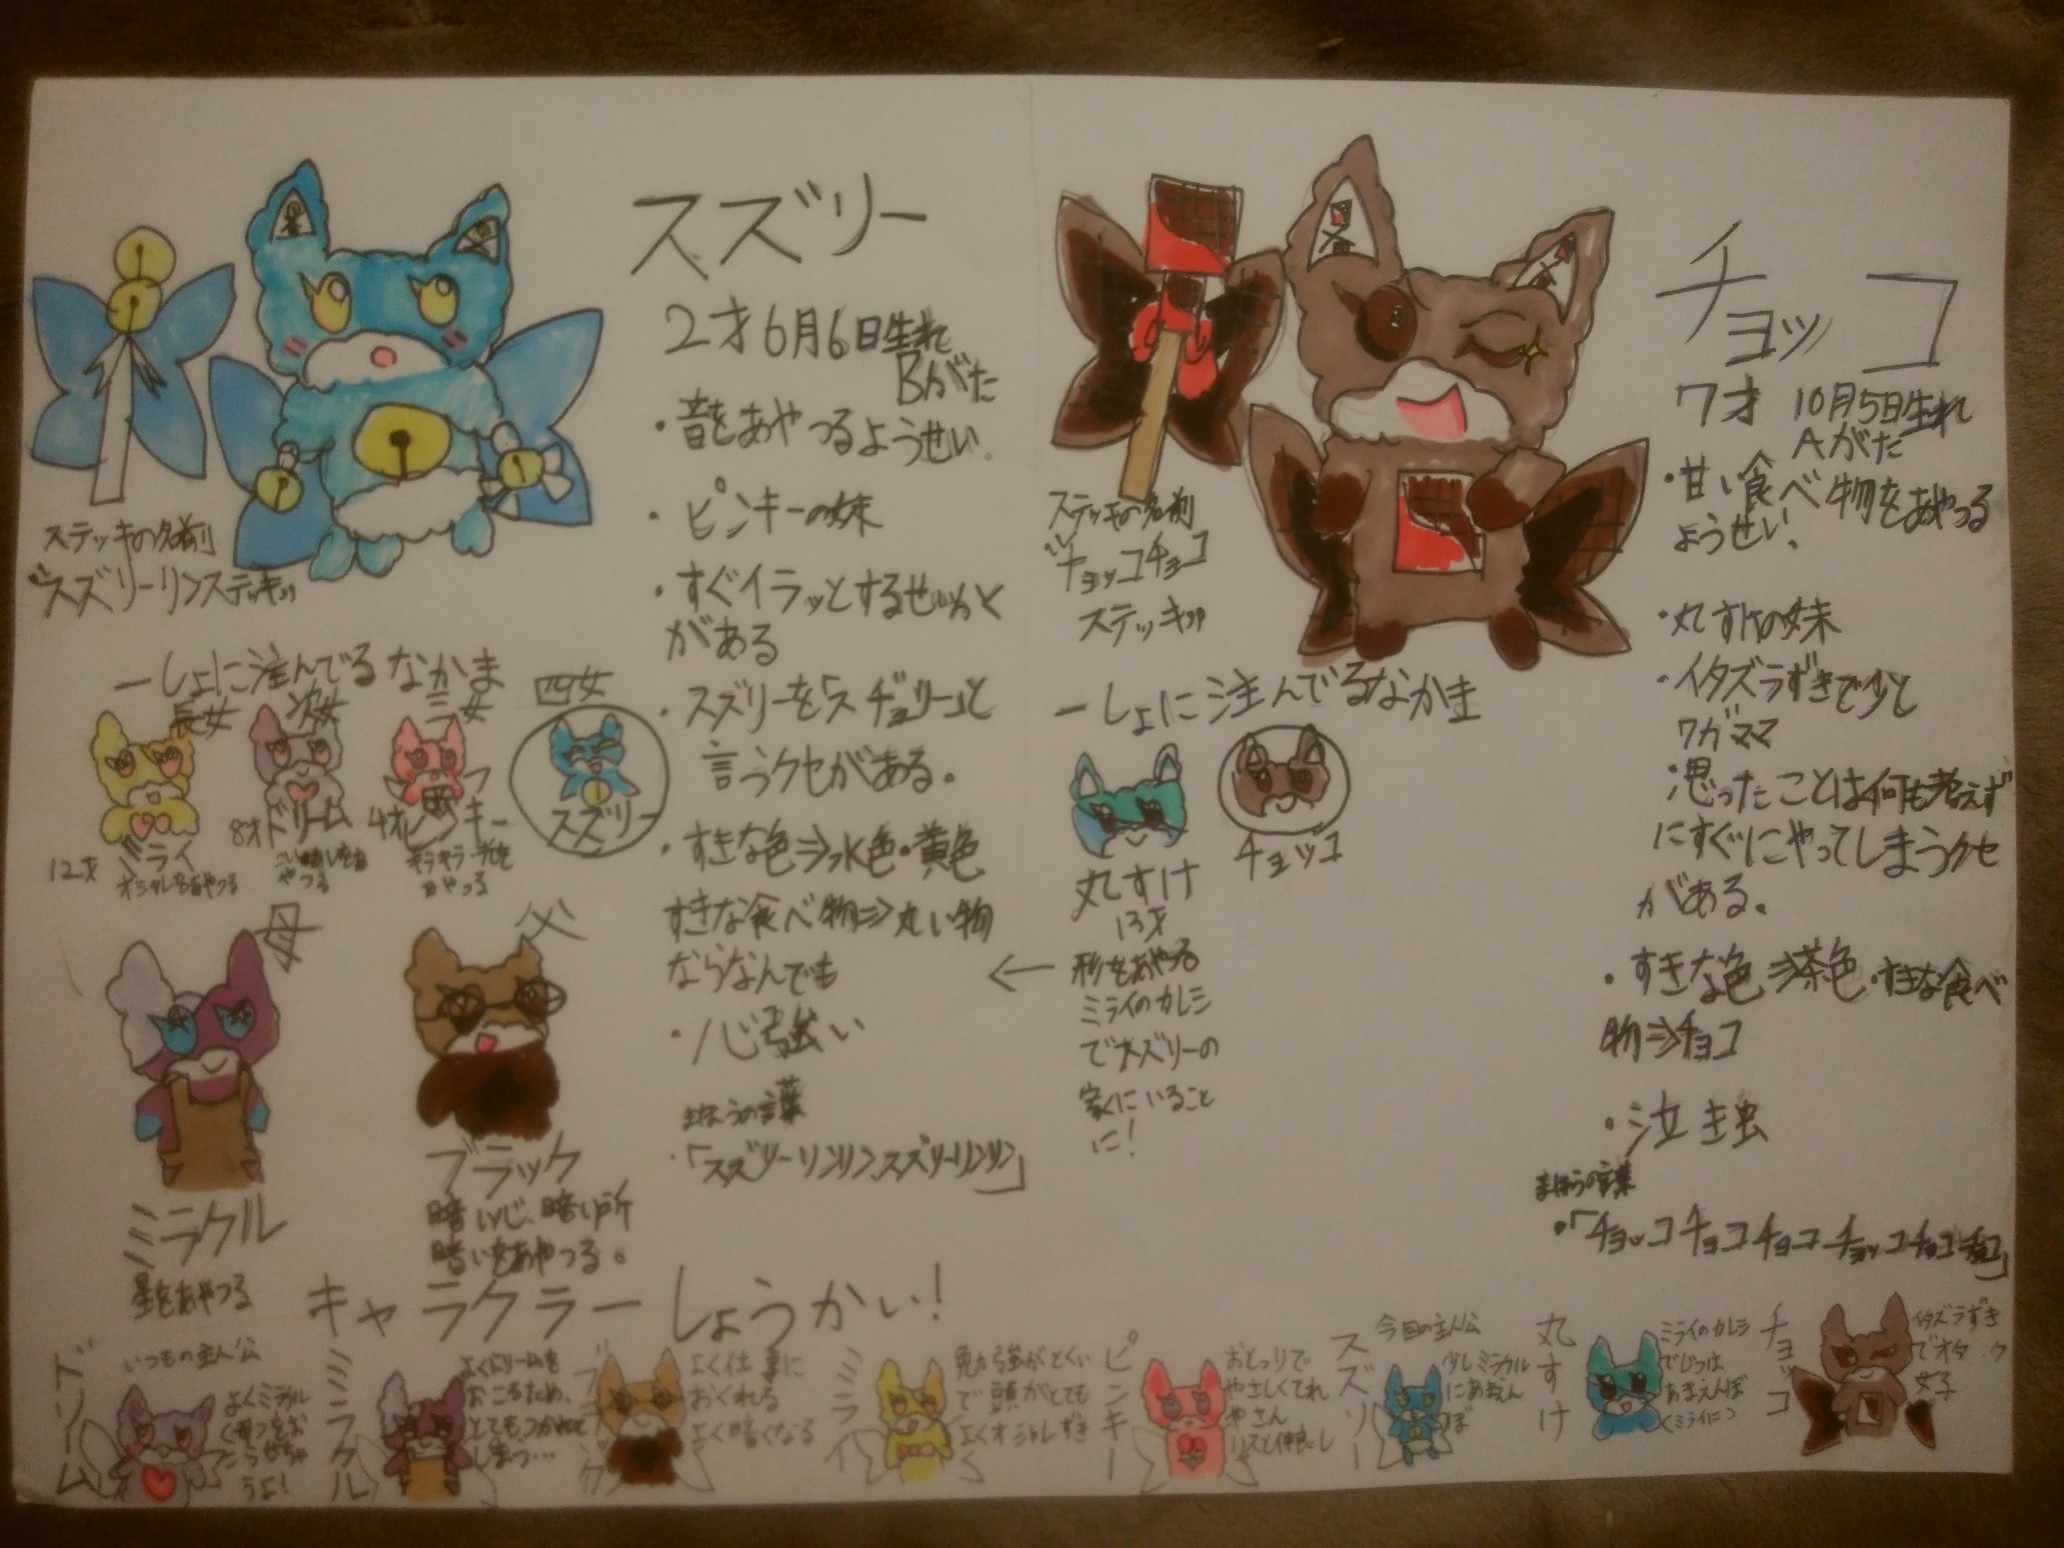 スズリー
2才6月6日生れ
Bがた
・音をあやつるようせい。
・ピンキーの妹
・すぐイラッとするせいかく
がある
・スズリーを「スヂョリー」と
言うクセがある。
・すきな色⇒水色・黄色
すきな食べ物⇒丸い物
ならなんでも
・心強い
まほうの言葉
・「スズリーリンリンスズリーリンリン」
ステッキの名前
"スズリーリンステッキ"
一しょに注んでるなかま
長女
次女
三女
四女
12才
ミライ
オシャレをあやつる
8才ドリーム
あやつる
4才ピンキー
キラキラ光を
あやつる
スズリー
母
ミラクル
星をあやつる
父
ブラック
暗い心、暗い所
暗いをあやつる。
チョッコ
7才 10月5日生れ
Aがた
・甘い食べ物をあやつる
ようせい。
・丸すけの妹
・イタズラずきで少し
ワガママ
・思ったことは何も考えず
にすぐにやってしまうクセ
がある。
・すきな色⇒茶色・すきな食べ
物⇒チョコ
・泣き虫
まほうの言葉
・「チョッコチョコチョコチョッコチョコチョコ」
ステッキの名前
"チョッコチョコ
ステッキ"
一しょに注んでるなかま
丸すけ
13才
形をあやつる
ミライのカレシ
でスズリーの
家にいること
に!
チョッコ
キャラクターしょうかい!
ドリーム
いつもの主人公
よくミラクル
おこらせちゃ
うよ!
ミラクル
よくドリームを
おこるため、
とてもつかれて
しまう…
ブラック
よく仕事に
おくれる
よく暗くなる
ミライ
勉強がとくい
で頭がとても
よくオシャレずき
ピンキー
おっとりで
やさしくてれ
やさん
リスと仲良し
スズリー
今回の主人公
少しミラクル
にあまえん
ぼ
丸すけ
ミライのカレシ
でじつは
あまえんぼ
(ミライに)
チョッコ
イタズラずき
でオタック
女子